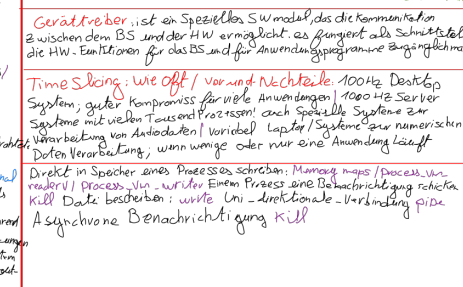 Gerättreiber: ist ein Spezielles SW modul, das die Kommunikation
zwischen dem BS und der HW ermöglicht. es fungiert als Schnittstel
die HW-Funktionen für das BS und für Anwendungsprogramme zugänglich ma
Time Slicing: wie oft / Vor und Nachteile: 100Hz Desktop
System; guter Kompromiss für viele Anwendungen | 1000Hz Server
Systeme mit vielen Tausend Prozessen! auch Spezielle Systeme zur
Verarbeitung von Audiodaten / Variabel Laptop / Systeme zur numerischen
Daten Verarbeitung; wenn wenige oder nur eine Anwendung läuft
Direkt in Speicher eines Prozesses schreiben: Memory maps / process_vm_
readerv / Process_vm_writer Einem Przess eine Benachrichtigung schicken
Kill Datei bescheiben: write Uni-direktionale-Verbindung pipe
Asynchrone Benachrichtigung Kill